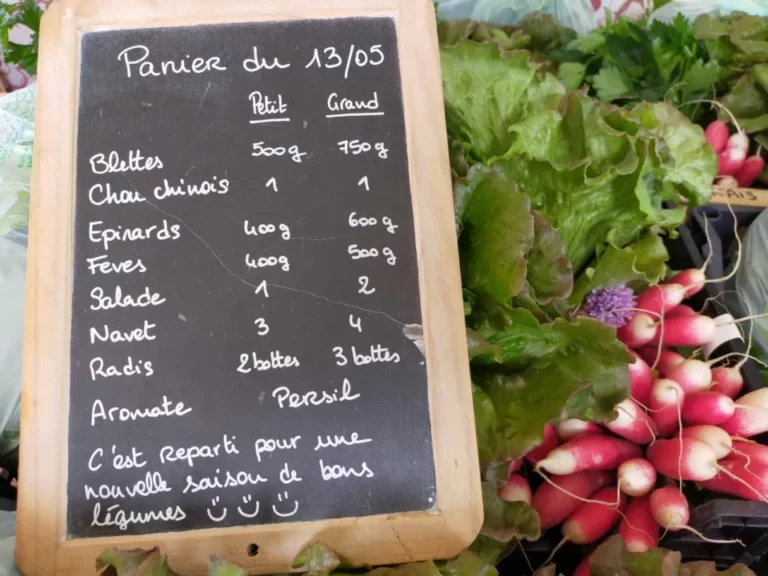 Panier du 13/05
Petit Grand
Blettes 500g 750g
Chou chinois 1 1
Epinards 400g 600g
Feves 400g 500g
Salade 1 2
Navet 3 4
Radis 2 bottes 3 bottes
Aromate Persil
C'est reparti pour une
nouvelle saison de bons
légumes